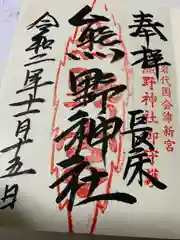 奉拝
長床
岩代国会津新宮
熊野神社御守護
熊野神社
令和二年十一月十五日